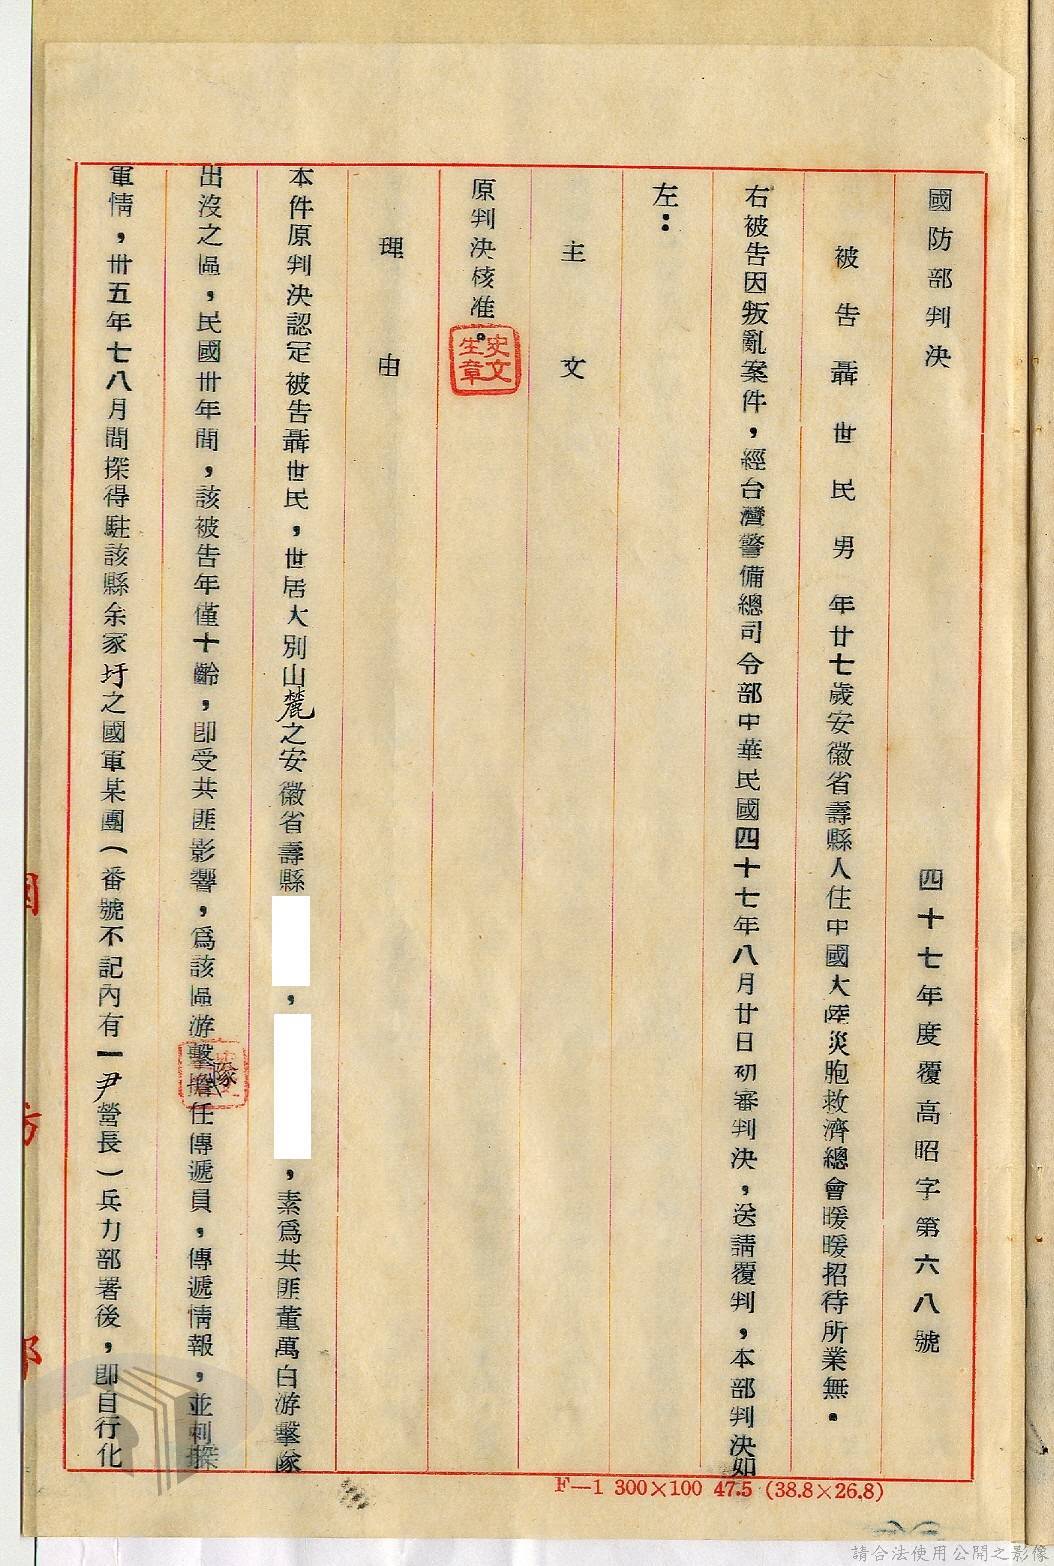 國防部判決
四十七年度覆高昭字第六八號
被告聶世民男年廿七歲安徽省壽縣人住中國大陸災胞救濟總會暖暖招待所業無。
右被告因叛亂案件，經台灣警備總司令部中華民國四十七年八月廿日初審判決，送請覆判，本部判決如
左：
主文
原判決核准。
史文生章
理由
本件原判決認定被告聶世民，世居大別山麓之安徽省壽縣，，素爲共匪董萬白游擊隊
出沒之區，民國卅年間，該被告年僅十齡，即受共匪影響，爲該區游擊隊擔任傳遞員，傳遞情報，並刺探
軍情，卅五年七八月間探得駐該縣余家圩之國軍某團(番號不記內有一尹營長)兵力部署後，即自行化
國防部
F—1 300×100 47.5 (38.8×26.8)
請合法使用公開之影像